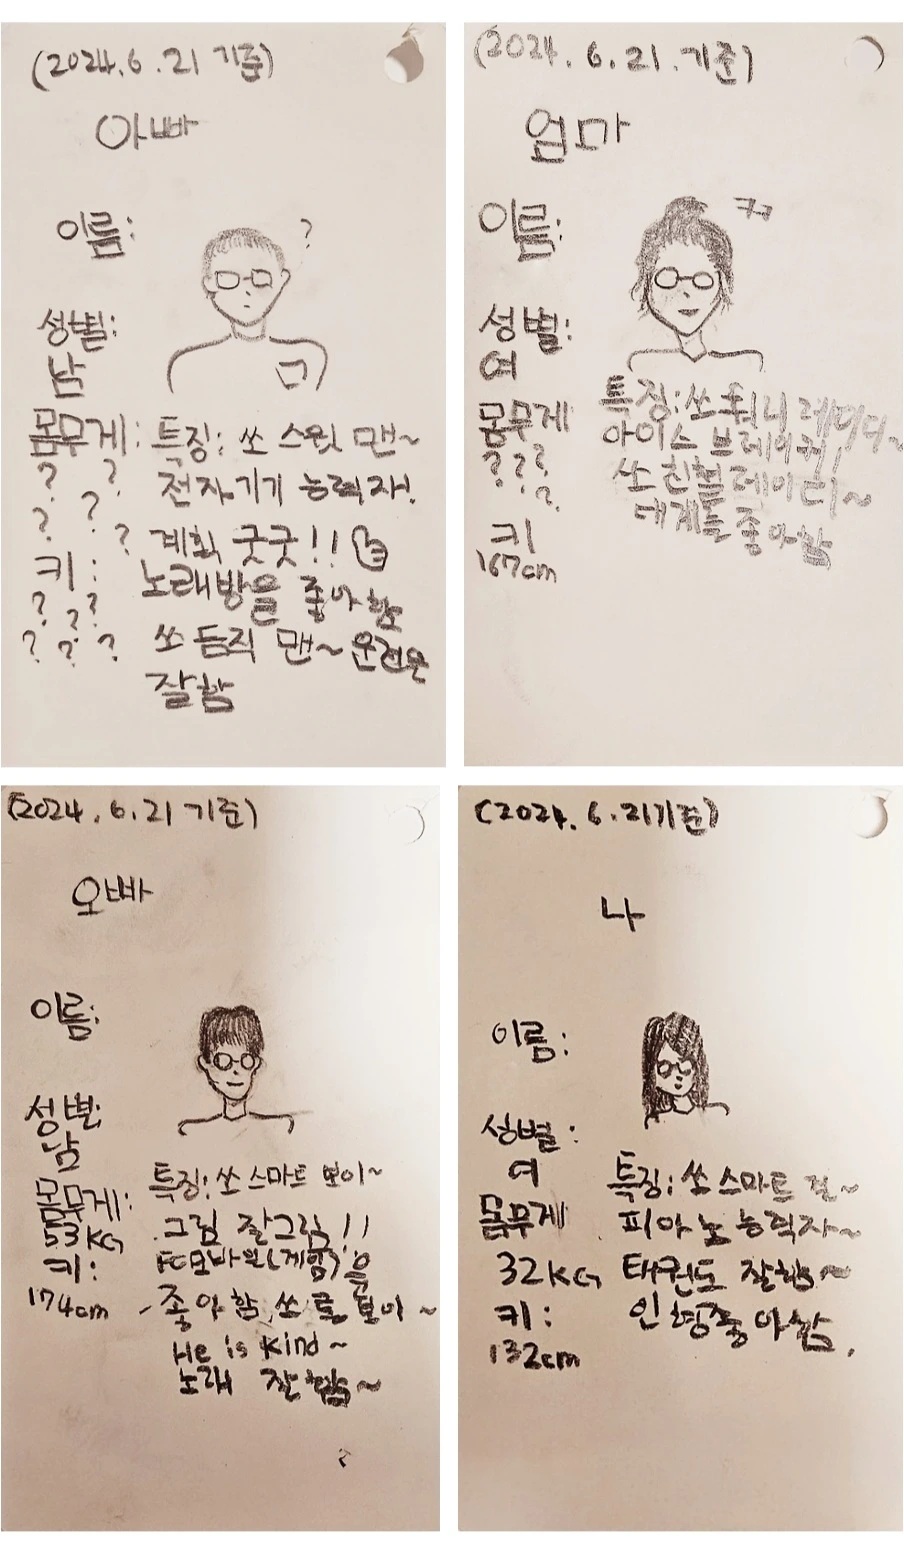 (2024.6.21 기준)
아빠
이름:
?
성별:
남
몸무게:
? ?
? ?
?
키:
? ?
??
? ? ?
특징: 쏘 스윗 맨~
전자기기 능력자!
계획 굿굿!!
노래방을 좋아함
쏘 듬직 맨~ 운전은
잘함
(2024.6.21.기준)
엄마
이름:
ㅋㅋ
성별:
여
몸무게
???
?
키
167cm
특징:쏘 워니 레이디~
아이스 브레이커,
쏘 친절 레이디~
대게를 좋아함
(2024.6.21 기준)
오빠
이름:
성별:
남
몸무게:
53KG
키:
174cm
특징: 쏘 스마트 보이~
그림 잘그림!!
FC모바일(게임)을
좋아함, 쏘 보이~
He is kind~
노래 잘함~
?
(2024.6.21기준)
나
이름:
성별:
여
몸무게
32KG
키:
132cm
특징: 쏘 스마트 걸~
피아노 능력자~
태권도 잘함~
인형좋아함.